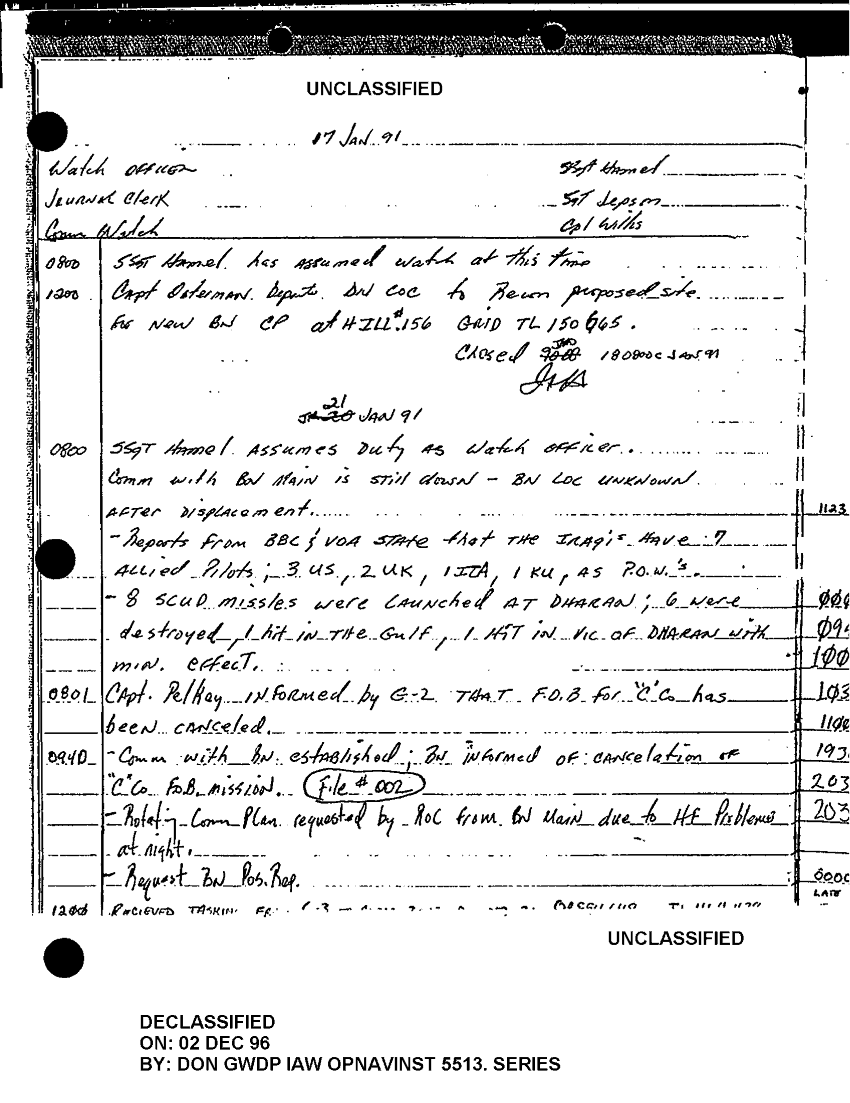 UNCLASSIFIED
17 JAN 91
Watch Officer SSgt Hamel
Journal Clerk SGT Jepson
Comm Watch Cpl Willis
0800 SSGT Hamel has assumed watch at this time
1200 Capt Osterman Departs BN COC to Recon proposed site
for New BN CP at HILL# 156 GRID TL 150665.
Closed 180800C JAN 91
21 JAN 91
0800 SSGT Hamel Assumes Duty as Watch Officer.
Comm with BN MAIN is still down - BN LOC UNKNOWN
AFTER Displacement. 1123
- Reports from BBC & VOA STATE that THE IRAQI's HAVE 7
ALLIED Pilots; 3 US, 2 UK, 1 ITA, 1 KU, AS P.O.W.'s.
- 8 SCUD missles were LAUNCHED AT DHARAN; 6 were
destroyed, 1 hit in THE Gulf, 1 HIT IN VIC OF DHARAN with
min. effect. 100
0801 Capt. Pelkey INFORMED by G-2 THAT F.O.B for "C" Co has 103
been canceled. 1100
0940 - Comm with BN established; BN INFORMED OF CANCELATION OF 193
"C" Co F.O.B. mission. File # 002 203
- Rotating Comm Plan requested by ROC from BN Main due to HF Problems 203
at night.
- Request BN Pos. Rep. 0000
LATE
1200 RECIEVED TASKING
UNCLASSIFIED
DECLASSIFIED
ON: 02 DEC 96
BY: DON GWDP IAW OPNAVINST 5513. SERIES